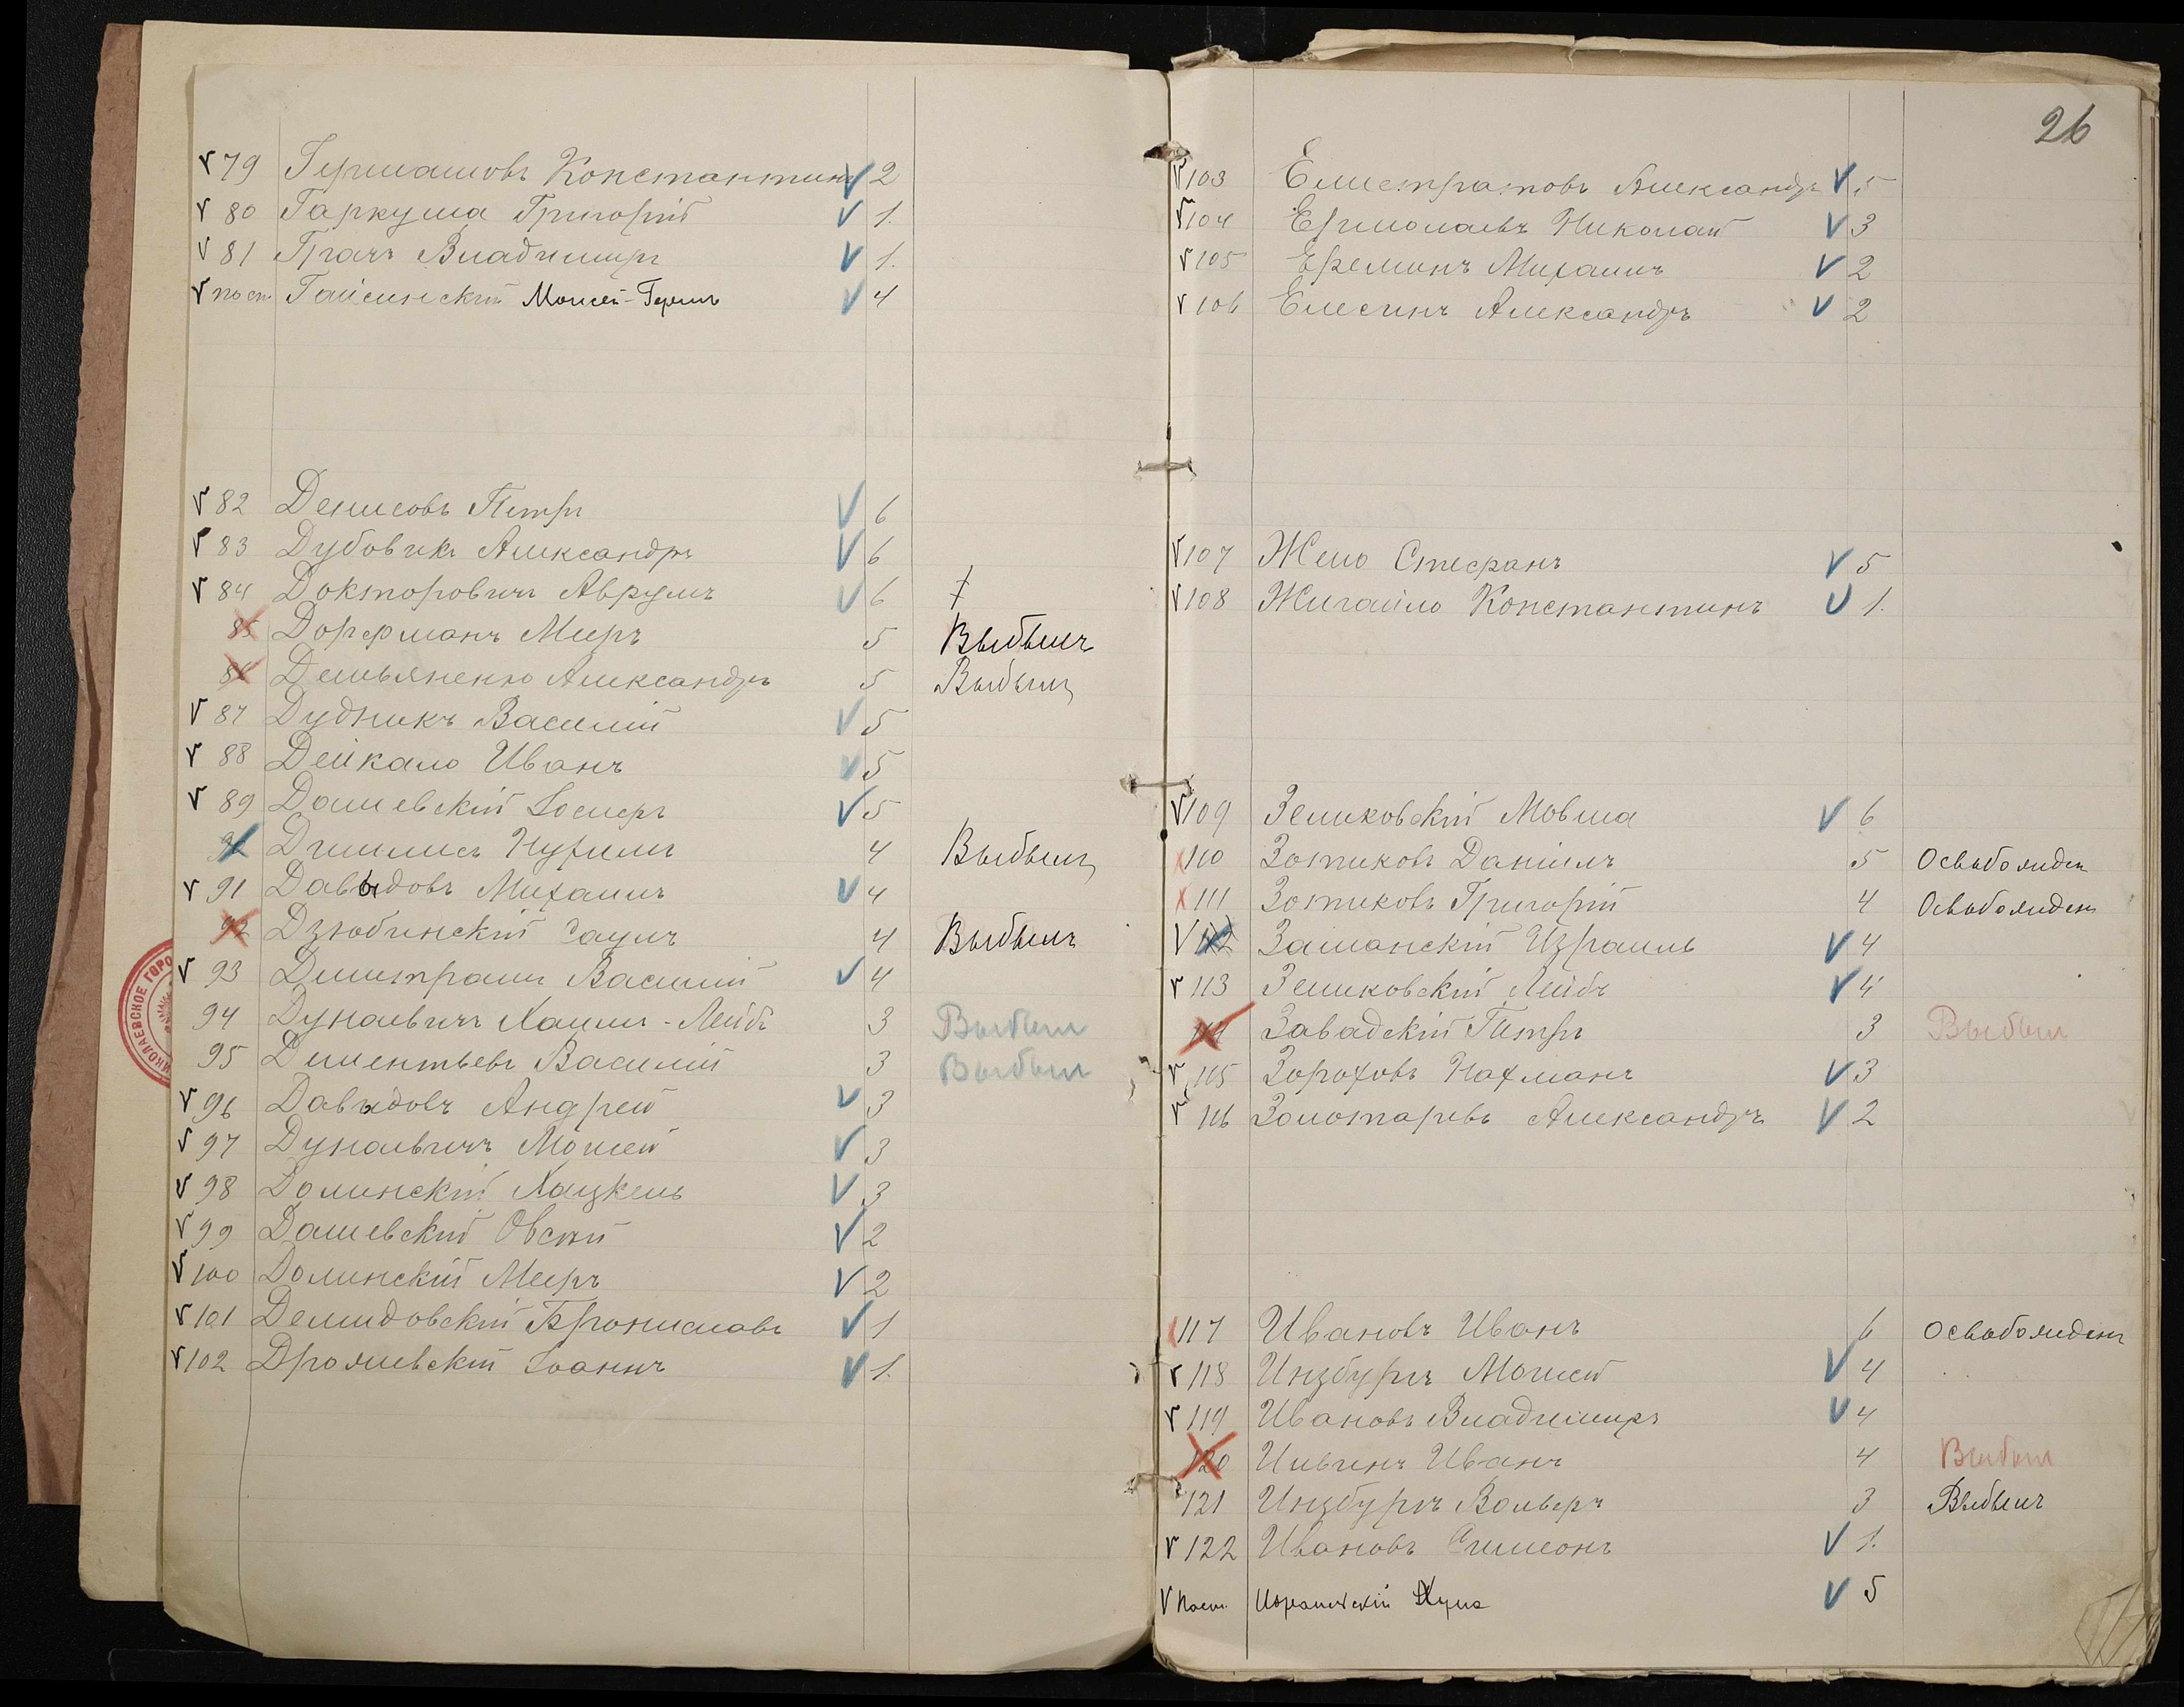 79 Гермашовъ Константинъ 2
80 Гаркуша Григорій 1.
81 Грачъ Владиміръ 1.
пост. Гайсинскій Моисей-Герш 4
82 Денисовъ Петръ 6
83 Дубовикъ Александръ 6
84 Докторовичъ Аврумъ 6 †
85 Дорфманъ Меиръ 5 Выбылъ
86 Демьяненко Александръ 5 Выбылъ
87 Дудникъ Василій 5
88 Дейкало Иванъ 5
89 Дашевскій Іосифъ 5
90 Нухимъ 4 Выбылъ
91 Давыдовъ Михаилъ 4
92 Дзюбинскій Саулъ 4 Выбылъ
93 Димитраш Василій 4
94 Дунаевичъ Хаимъ-Лейбъ 3 Выбылъ
95 Дементьевъ Василій 3 Выбылъ
96 Давыдовъ Андрей 3
97 Дунаевичъ Моисей 3
98 Долинскій Хацкель 3
99 Дашевскій Овсей 2
100 Долинскій Меиръ 2
101 Демидовскій Брониславъ 1
102 Дрожевскій Іоаннъ 1.
26
103 Елистратовъ Александръ 5
104 Ермолаевъ Николай 3
105 Ереминъ Михаилъ 2
106 Елесинъ Александръ 2
107 Жело Стефанъ 5
108 Жигайло Константинъ 1.
109 Зеликовскій Мовша 6
110 Зотиковъ Даніилъ 5 Освобожден
111 Зотиковъ Григорій 4 Освобожденъ
112 Заманскій Израиль 4
113 Зеликовскій Лейбъ 4
114 Завадскій Петръ 3 Выбыл
115 Зороховъ Нахманъ 3
116 Золотаревъ Александръ 2
117 Ивановъ Иванъ 6 Освобожденъ
118 Инзбургъ Моисей 4
119 Ивановъ Владиміръ 4
120 Ильинъ Иванъ 4 Выбыл
121 Инзбургъ Вольфъ 3 Выбылъ
122 Ивановъ Симеонъ 1.
Пост. 5